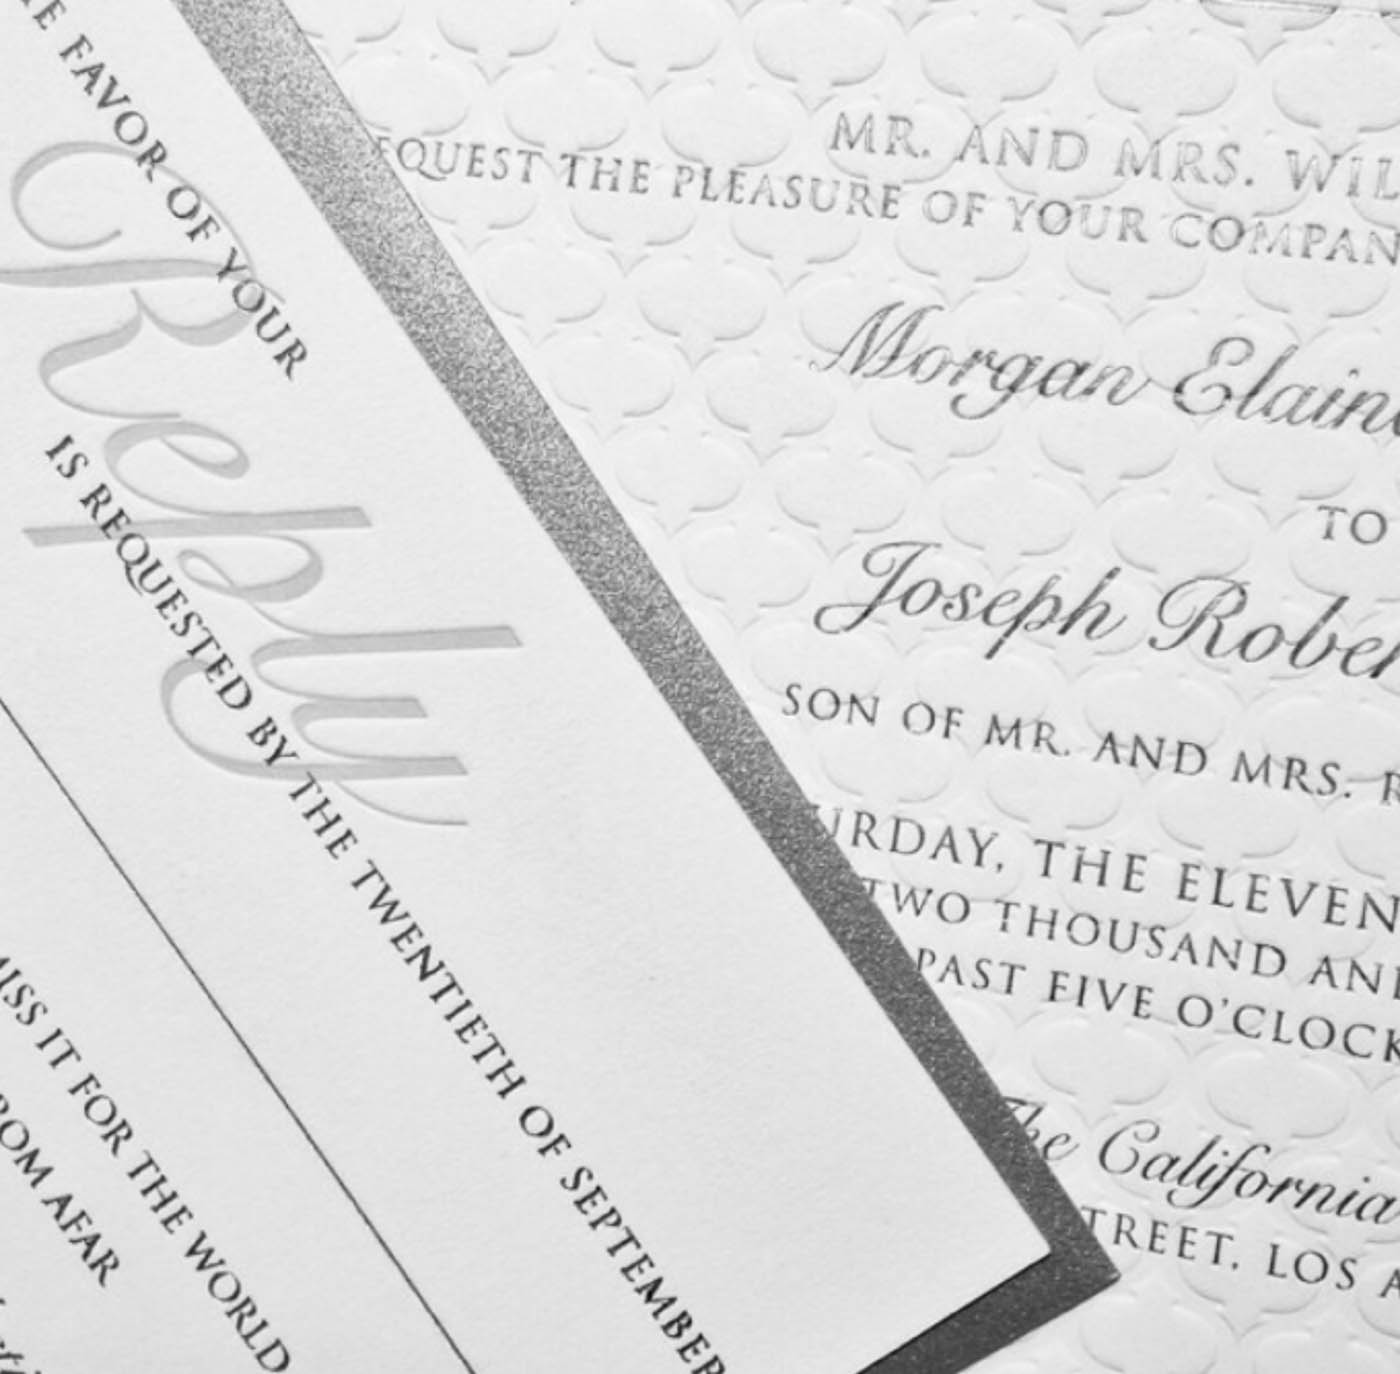 FAVOR OF YOUR
Reply
IS REQUESTED BY THE TWENTIETH OF SEPTEMBER
MISS IT FOR THE WORLD
FROM AFAR
MR. AND MRS. WIL
EQUEST THE PLEASURE OF YOUR COMPAN
Morgan Elaine
TO
Joseph Rober
SON OF MR. AND MRS. R
URDAY, THE ELEVEN
TWO THOUSAND AND
PAST FIVE O'CLOCK
The California
TREET, LOS A